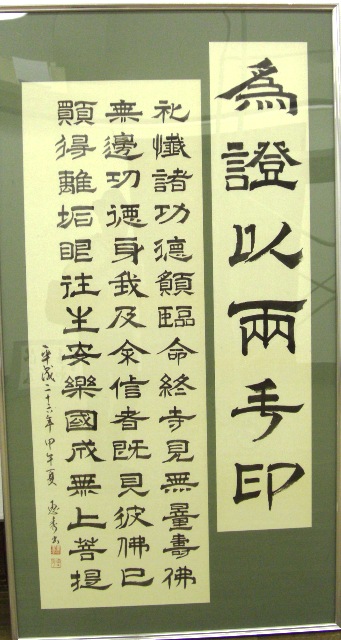 為證以兩手印
礼懺諸功德願臨命終寺見無量壽佛
無邊功德身我及余信者既見彼佛已
願得離垢眼往生安樂國成無上菩提
平成二十六年甲午夏